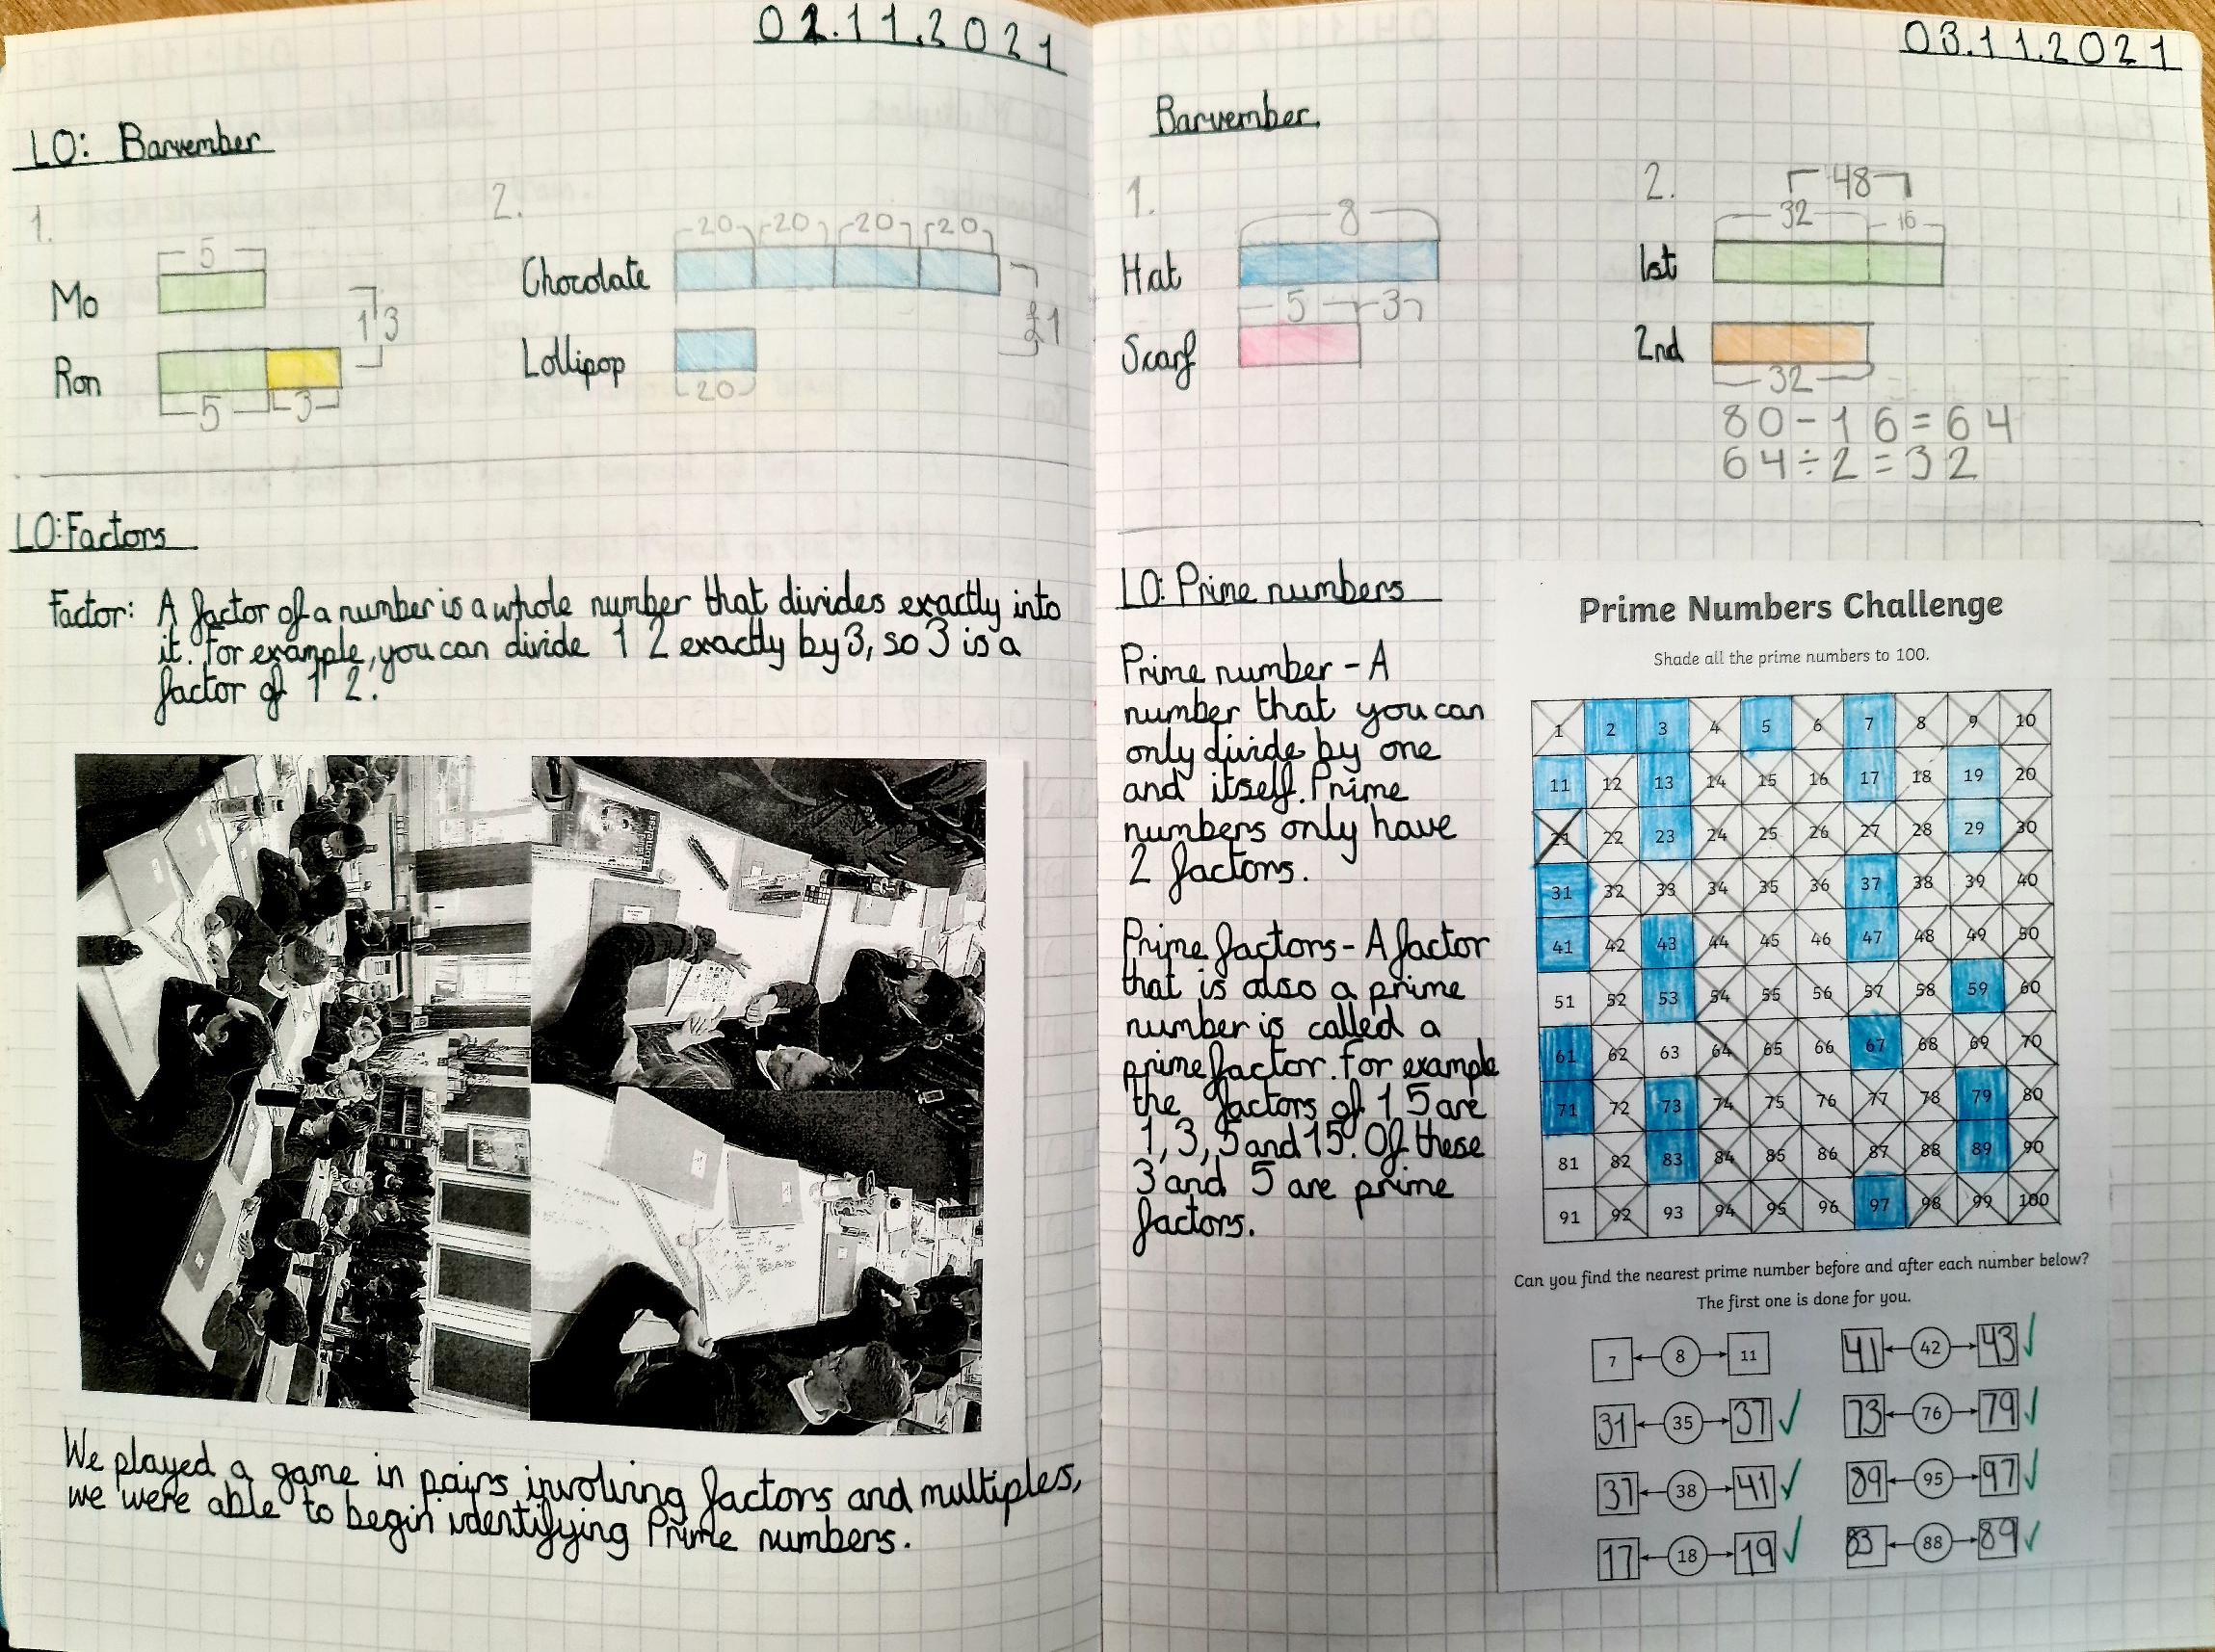 02.11.2021
LO: Barvember
1.
5
Mo
13
Ron
5 3
2.
20 20 20 20
Chocolate
£1
Lollipop
20
LO: Factors
Factor: A factor of a number is a whole number that divides exactly into
it. For example, you can divide 12 exactly by 3, so 3 is a
factor of 12.
Homeless
We played a game in pairs involving factors and multiples,
we were able to begin identifying Prime numbers.
03.11.2021
Barvember
1.
8
Hat
5 3
Scarf
2.
48
32 16
1st
2nd
32
80-16=64
64÷2=32
LO: Prime numbers
Prime number - A
number that you can
only divide by one
and itself. Prime
numbers only have
2 factors.
Prime factors - A factor
that is also a prime
number is called a
prime factor. For example
the factors of 15 are
1, 3, 5 and 15. Of these
3 and 5 are prime
factors.
Prime Numbers Challenge
Shade all the prime numbers to 100.
1 2 3 4 5 6 7 8 9 10
11 12 13 14 15 16 17 18 19 20
21 22 23 24 25 26 27 28 29 30
31 32 33 34 35 36 37 38 39 40
41 42 43 44 45 46 47 48 49 50
51 52 53 54 55 56 57 58 59 60
61 62 63 64 65 66 67 68 69 70
71 72 73 74 75 76 77 78 79 80
81 82 83 84 85 86 87 88 89 90
91 92 93 94 95 96 97 98 99 100
Can you find the nearest prime number before and after each number below?
The first one is done for you.
7 8 11
35 31 37
37 38 41
17 18 19
41 42 43
73 76 79
89 95 97
83 88 89